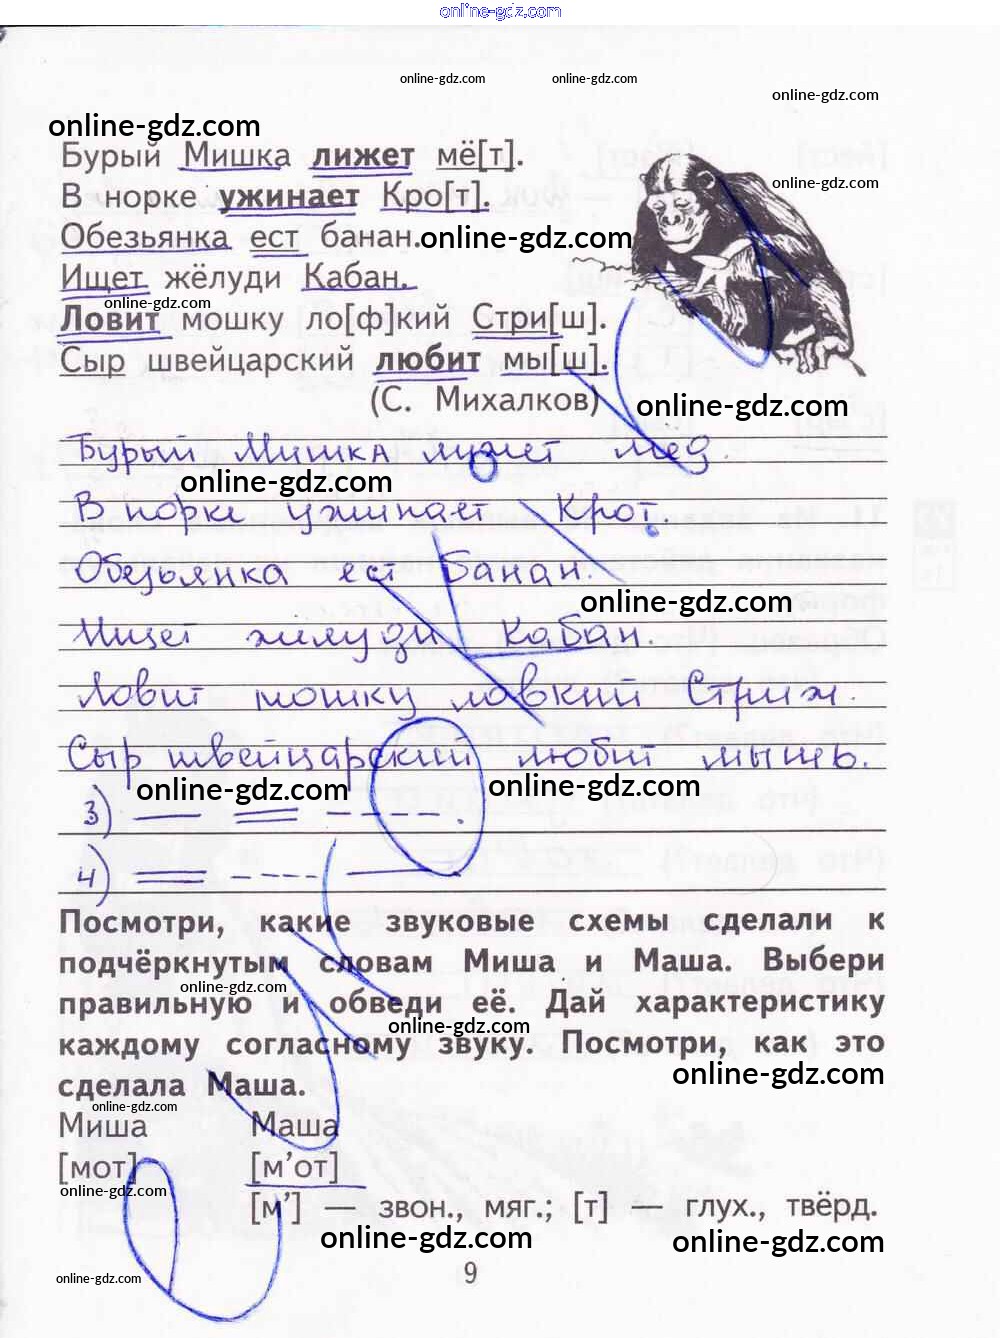 online-gdz.com
online-gdz.com online-gdz.com
online-gdz.com
online-gdz.com
Бурый Мишка лижет мё[т].
online-gdz.com
В норке ужинает Кро[т].
Обезьянка ест банан.
online-gdz.com
Ищет жёлуди Кабан.
online-gdz.com
Ловит мошку ло[ф]кий Стри[ш].
Сыр швейцарский любит мы[ш].
(С. Михалков)
online-gdz.com
Бурый Мишка лижет мед.
online-gdz.com
В норке ужинает Крот.
Обезьянка ест Банан.
online-gdz.com
Ищет жилуди Кабан.
Ловит мошку ловкий Стриж.
Сыр швейцарский любит мышь.
online-gdz.com online-gdz.com
3)
4)
Посмотри, какие звуковые схемы сделали к
подчёркнутым словам Миша и Маша. Выбери
online-gdz.com
правильную и обведи её. Дай характеристику
online-gdz.com
каждому согласному звуку. Посмотри, как это
online-gdz.com
сделала Маша.
online-gdz.com
Миша Маша
[мот] [м’от]
online-gdz.com
[м’] — звон., мяг.; [т] — глух., твёрд.
online-gdz.com online-gdz.com
9
online-gdz.com